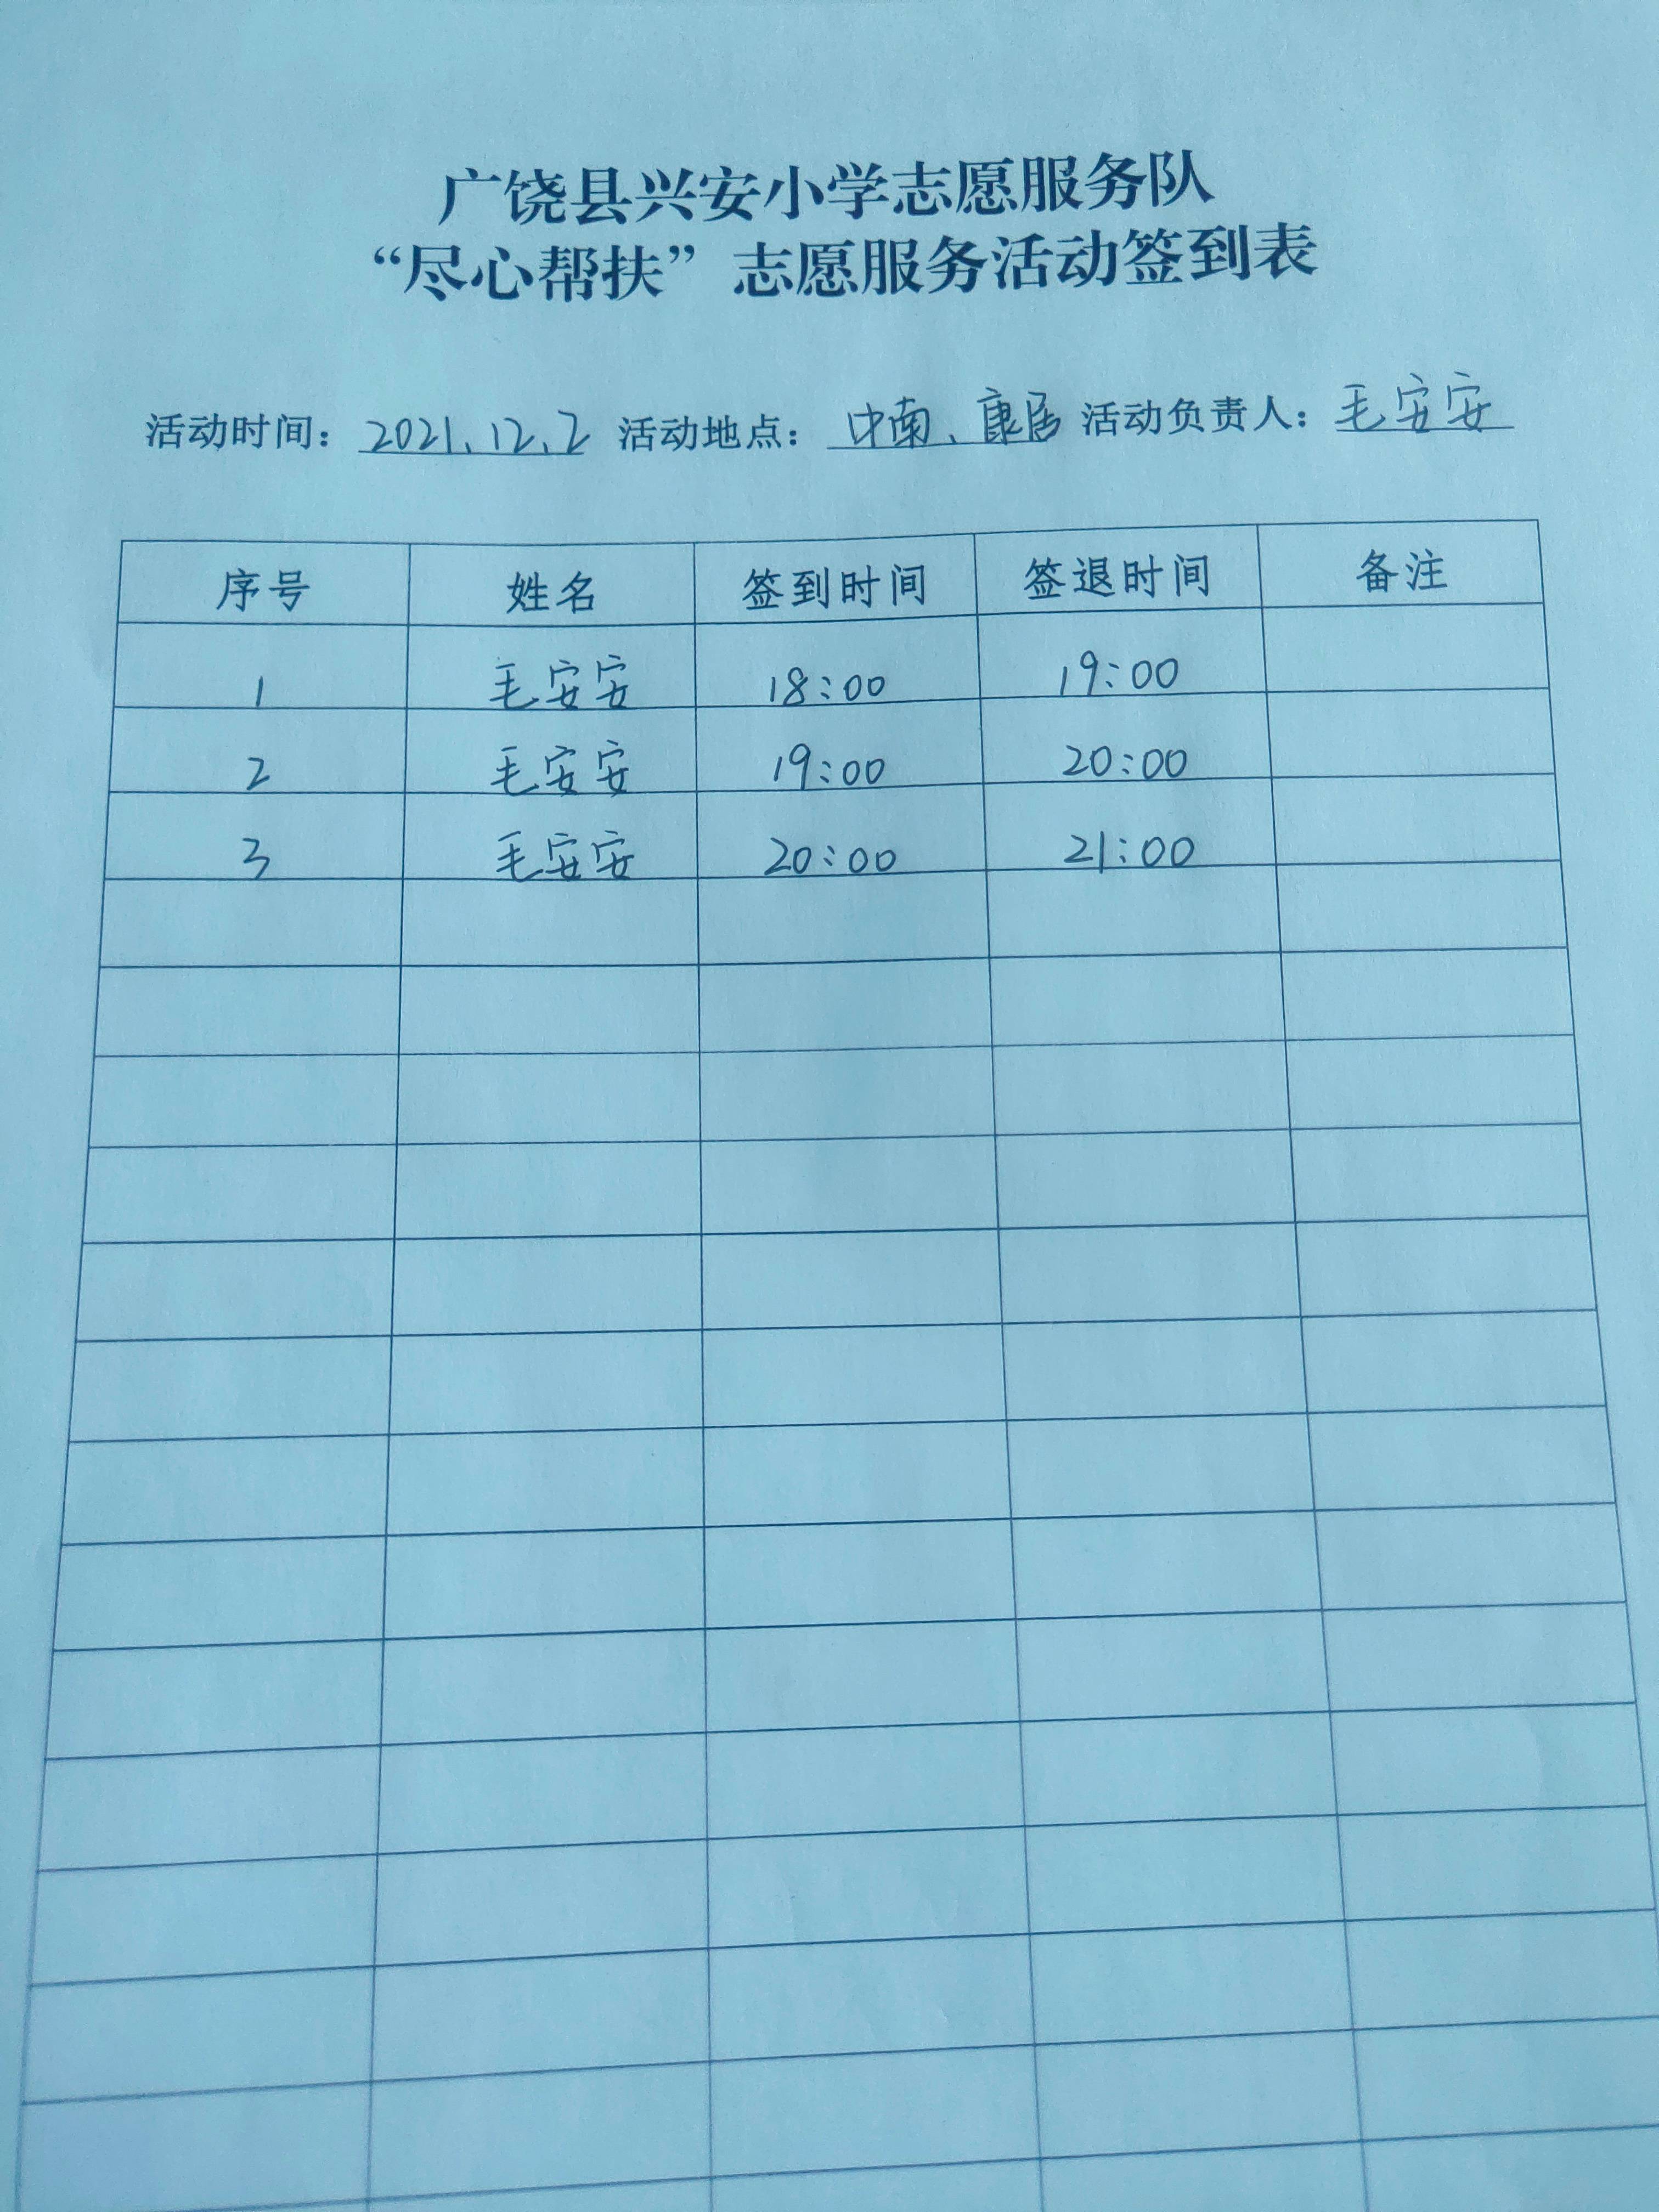 广饶县兴安小学志愿服务队
“尽心帮扶”志愿服务活动签到表
活动时间：2021.12.2 活动地点：中南、康居 活动负责人：毛安安
序号 姓名 签到时间 签退时间 备注
1 毛安安 18:00 19:00
2 毛安安 19:00 20:00
3 毛安安 20:00 21:00